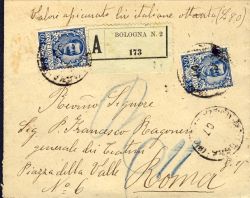 Valori assicurati lire italiane ottanta (L. 80)
A
BOLOGNA N. 2
173
Revmo Signore
Sig. P. Francesco Ragonesi
generale dei Teatini
Piazza della Valle
No 6
Roma